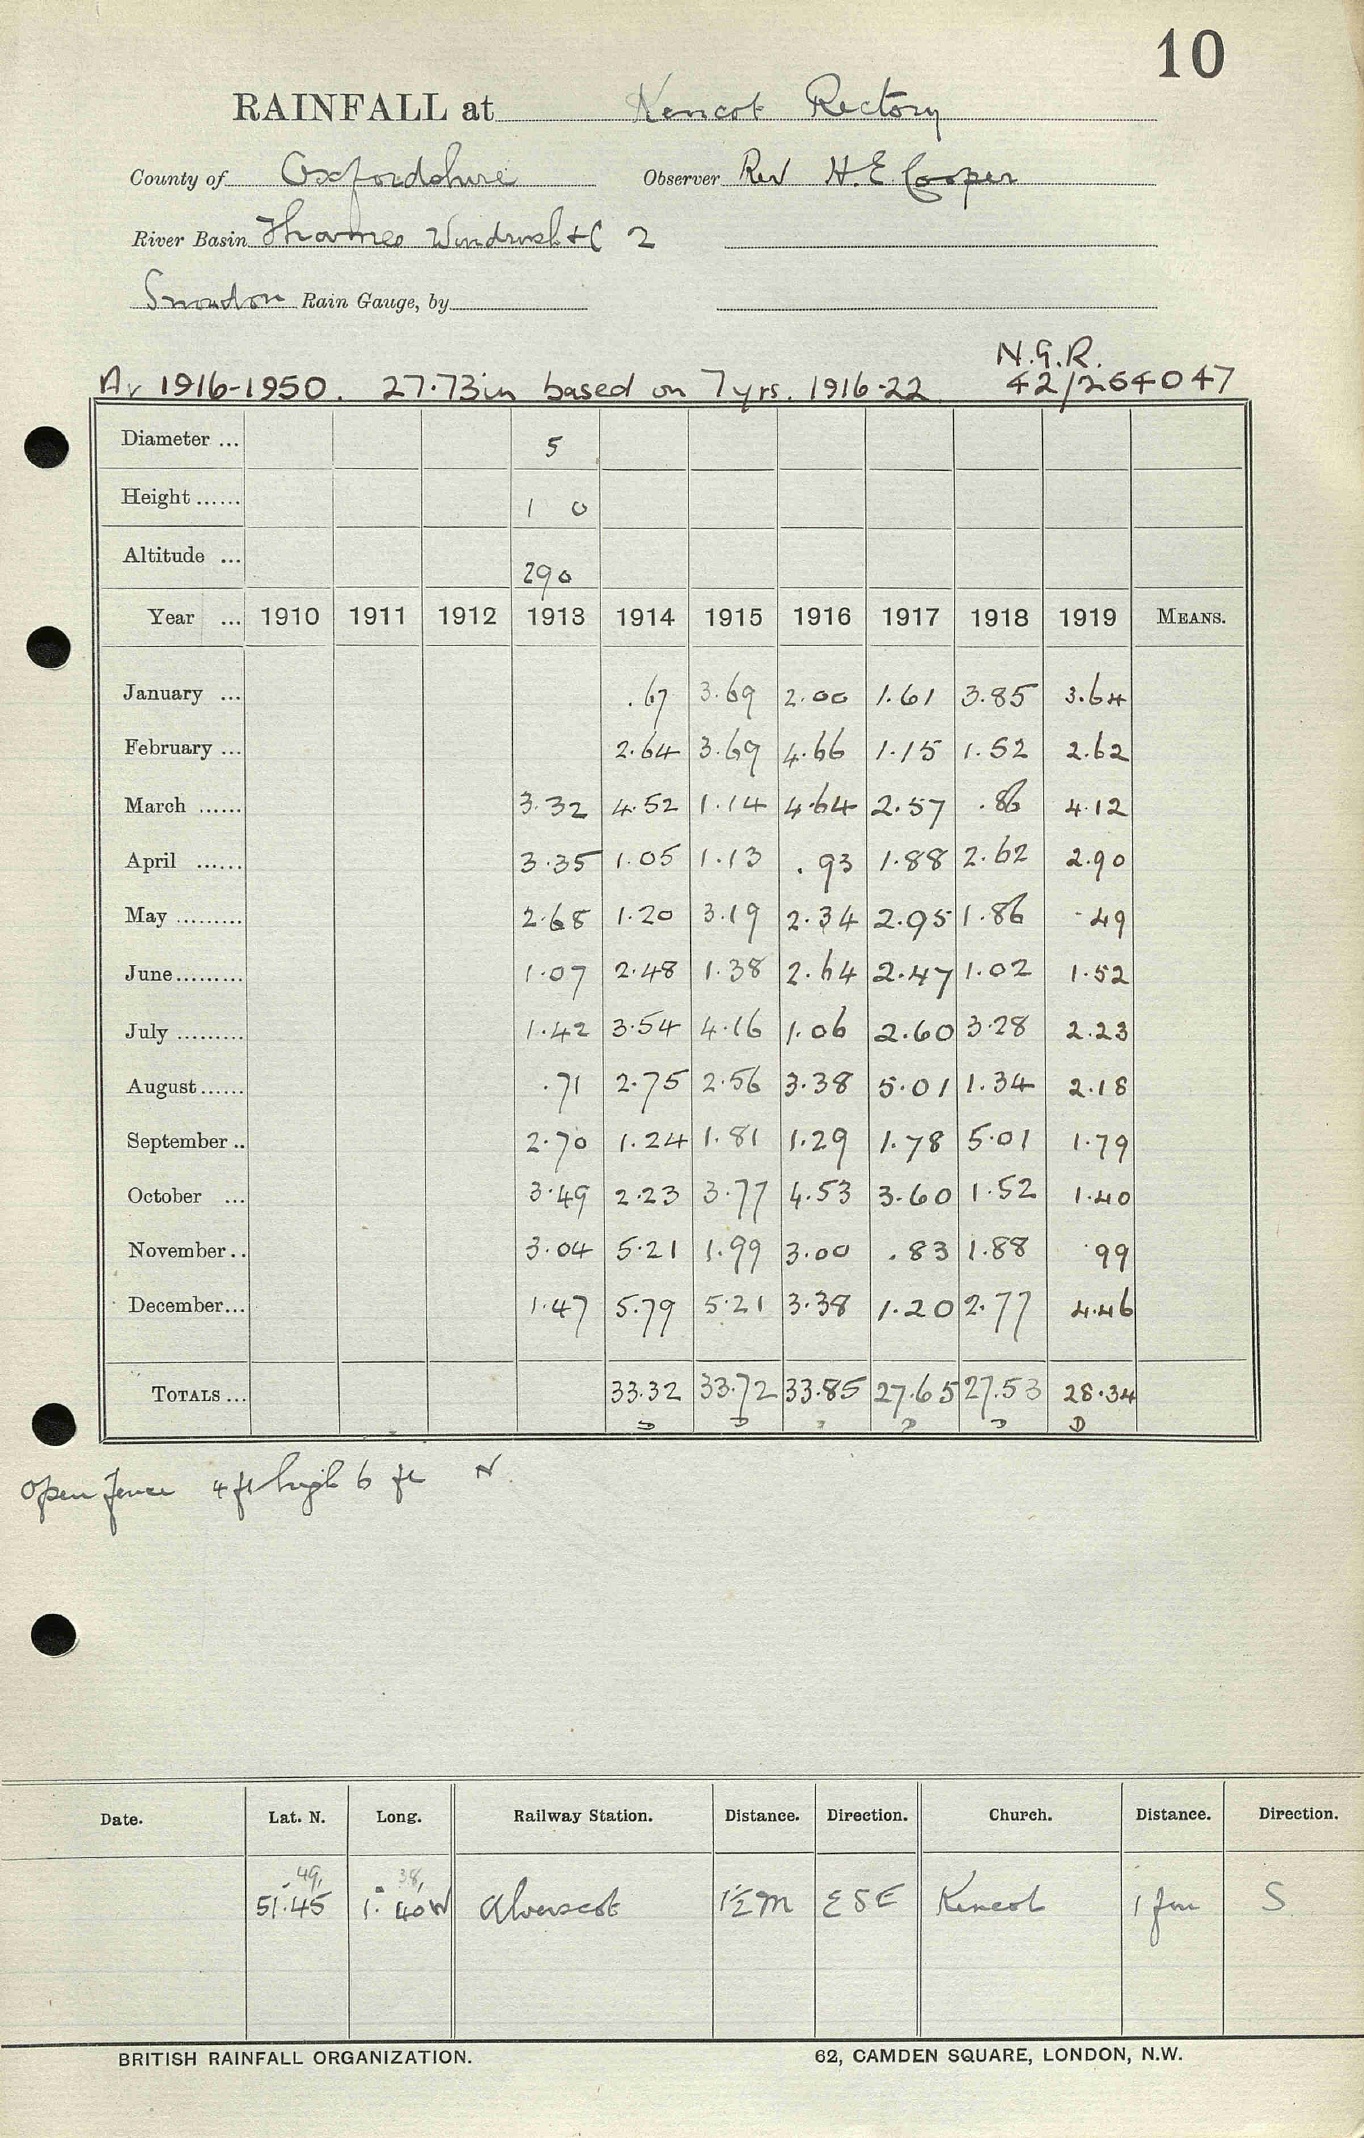 10
RAINFALL at Kencot Rectory
County of Oxfordshire Observer Rev H.E. Cooper
River Basin Thames Windrush &c 2
Snowdon Rain Gauge, by
N.G.R.
Av 1916-1950. 27.73in based on 7 yrs. 1916-22 42/254047
Diameter ... 5
Height ...... 1 0
Altitude ... 290
Year ... 1910 1911 1912 1913 1914 1915 1916 1917 1918 1919 MEANS.
January ... .67 3.69 2.00 1.61 3.85 3.64
February ... 2.64 3.69 4.66 1.15 1.52 2.62
March ...... 3.32 4.52 1.14 4.64 2.57 .86 4.12
April ...... 3.35 1.05 1.13 .93 1.88 2.62 2.90
May ......... 2.68 1.20 3.19 2.34 2.95 1.86 .49
June......... 1.07 2.48 1.38 2.64 2.47 1.02 1.52
July ......... 1.42 3.54 4.16 1.06 2.60 3.28 2.23
August...... .71 2.75 2.56 3.38 5.01 1.34 2.18
September .. 2.70 1.24 1.81 1.29 1.78 5.01 1.79
October ... 3.49 2.23 3.77 4.53 3.60 1.52 1.40
November .. 3.04 5.21 1.99 3.00 .83 1.88 .99
December... 1.47 5.79 5.21 3.38 1.20 2.77 4.46
TOTALS ... 33.32 33.72 33.85 27.65 27.53 28.34
D D D D D
Open fence 4 ft high 6 ft N
Date. Lat. N. Long. Railway Station. Distance. Direction. Church. Distance. Direction.
49 38
51.45 1° 40 W Alvescot 1½ m ESE Kencot 1 fur S
BRITISH RAINFALL ORGANIZATION. 62, CAMDEN SQUARE, LONDON, N.W.